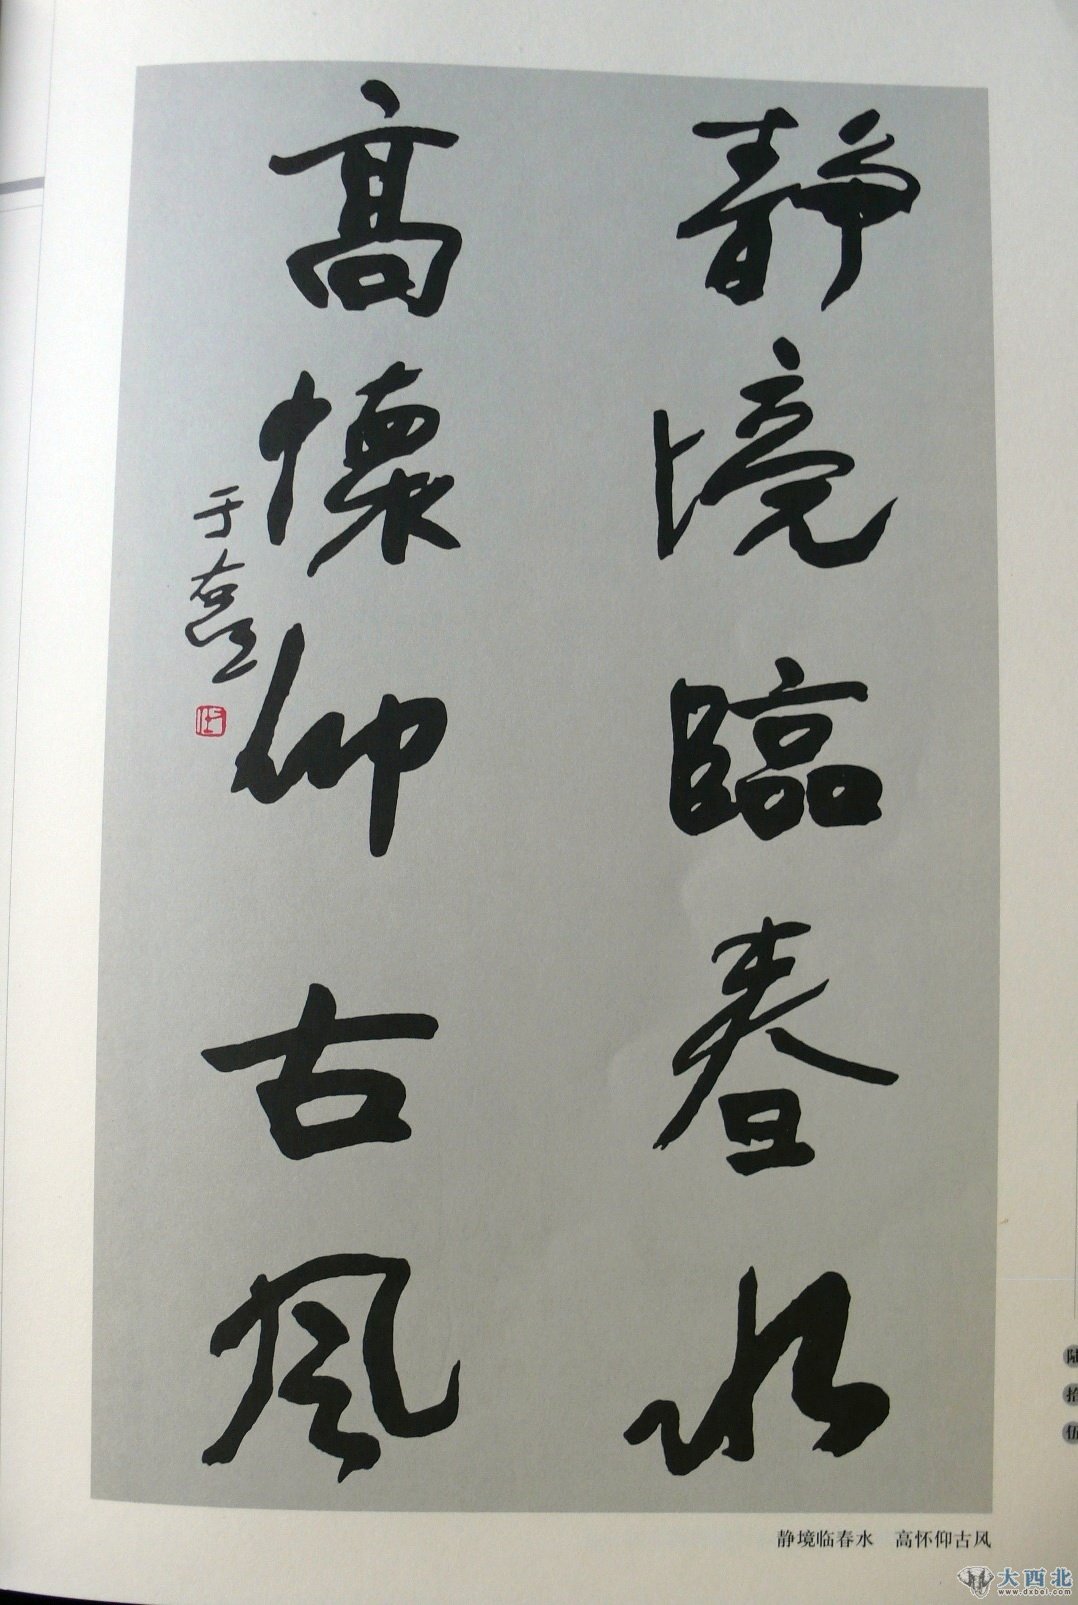 靜境臨春水
高懷仰古風
于右任
静境临春水 高怀仰古风
陆拾伍
大西北
www.dxbei.com